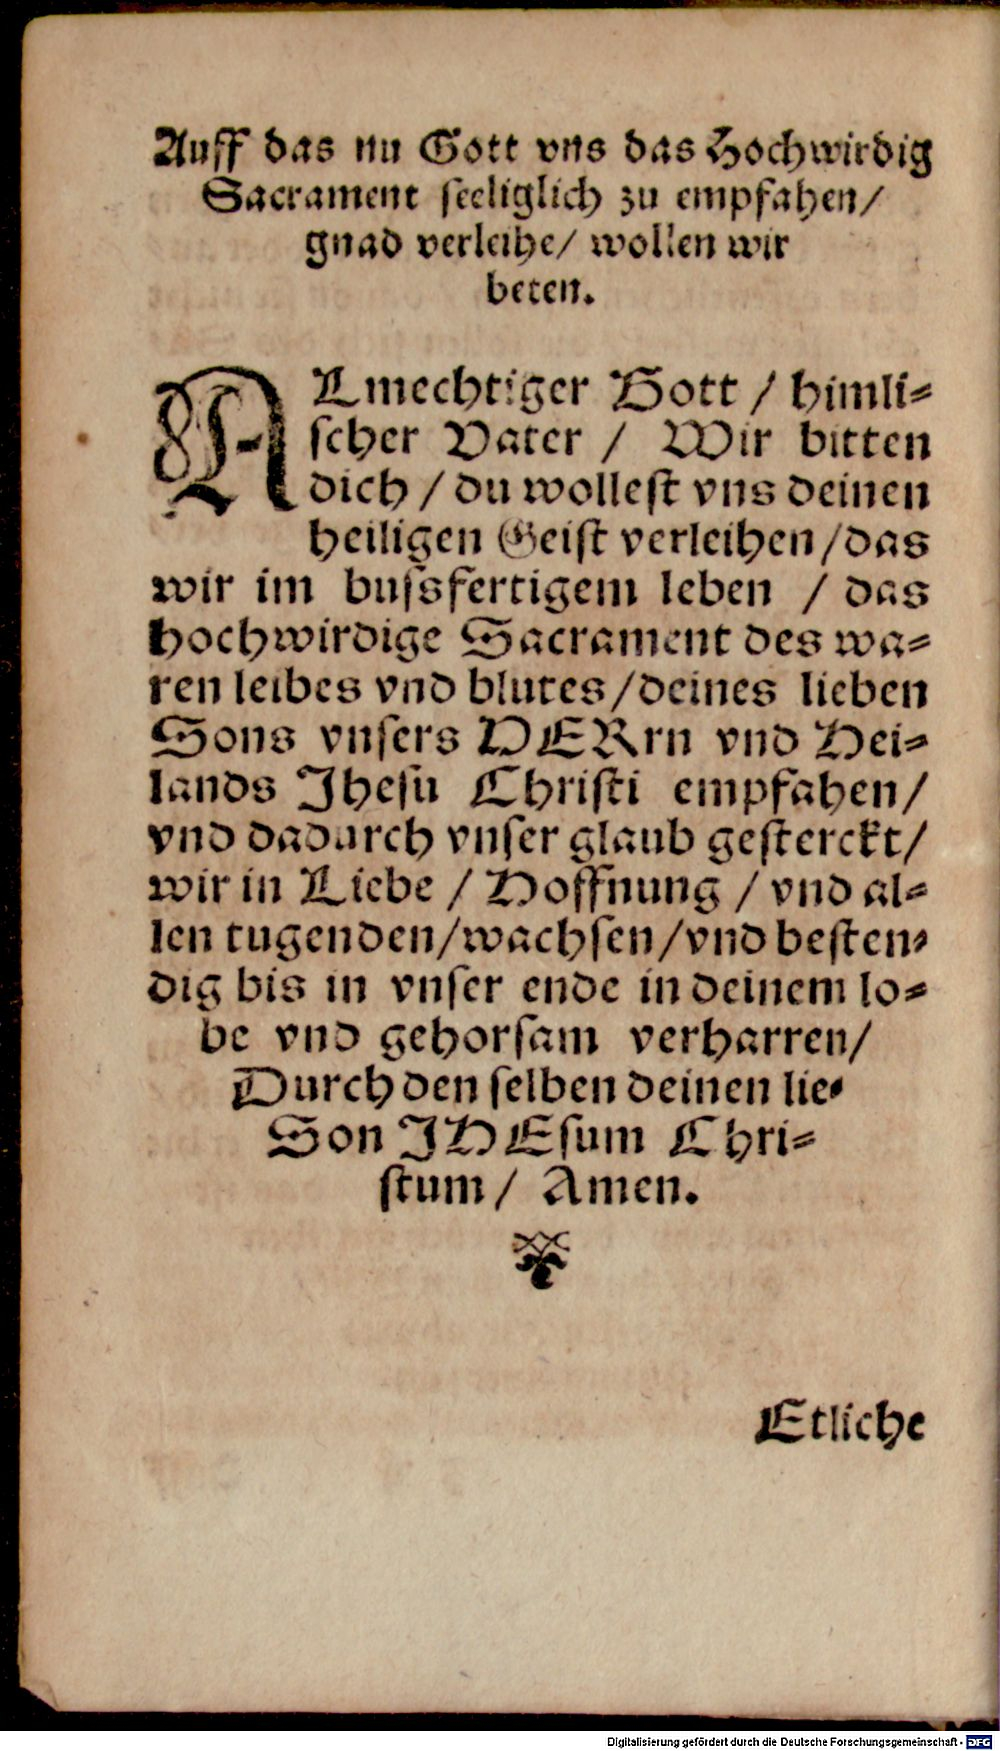 Auff das nu Gott vns das Hochwirdig
Sacrament seeliglich zu empfahen/
gnad verleihe/ wollen wir
beten.
ALmechtiger Gott / himli⸗
scher Vater / Wir bitten
dich / du wollest vns deinen
heiligen Geist verleihen/das
wir im bussfertigem leben / das
hochwirdige Sacrament des wa⸗
ren leibes vnd blutes/deines lieben
Sons vnsers HERrn vnd Hei⸗
lands Jhesu Christi empfahen/
vnd dadurch vnser glaub gesterckt/
wir in Liebe / Hoffnung / vnd al⸗
len tugenden/wachsen/vnd besten⸗
dig bis in vnser ende in deinem lo⸗
be vnd gehorsam verharren/
Durch den selben deinen lie⸗
Son JHEsum Chri⸗
stum/ Amen.
Etliche
Digitalisierung gefördert durch die Deutsche Forschungsgemeinschaft - DFG